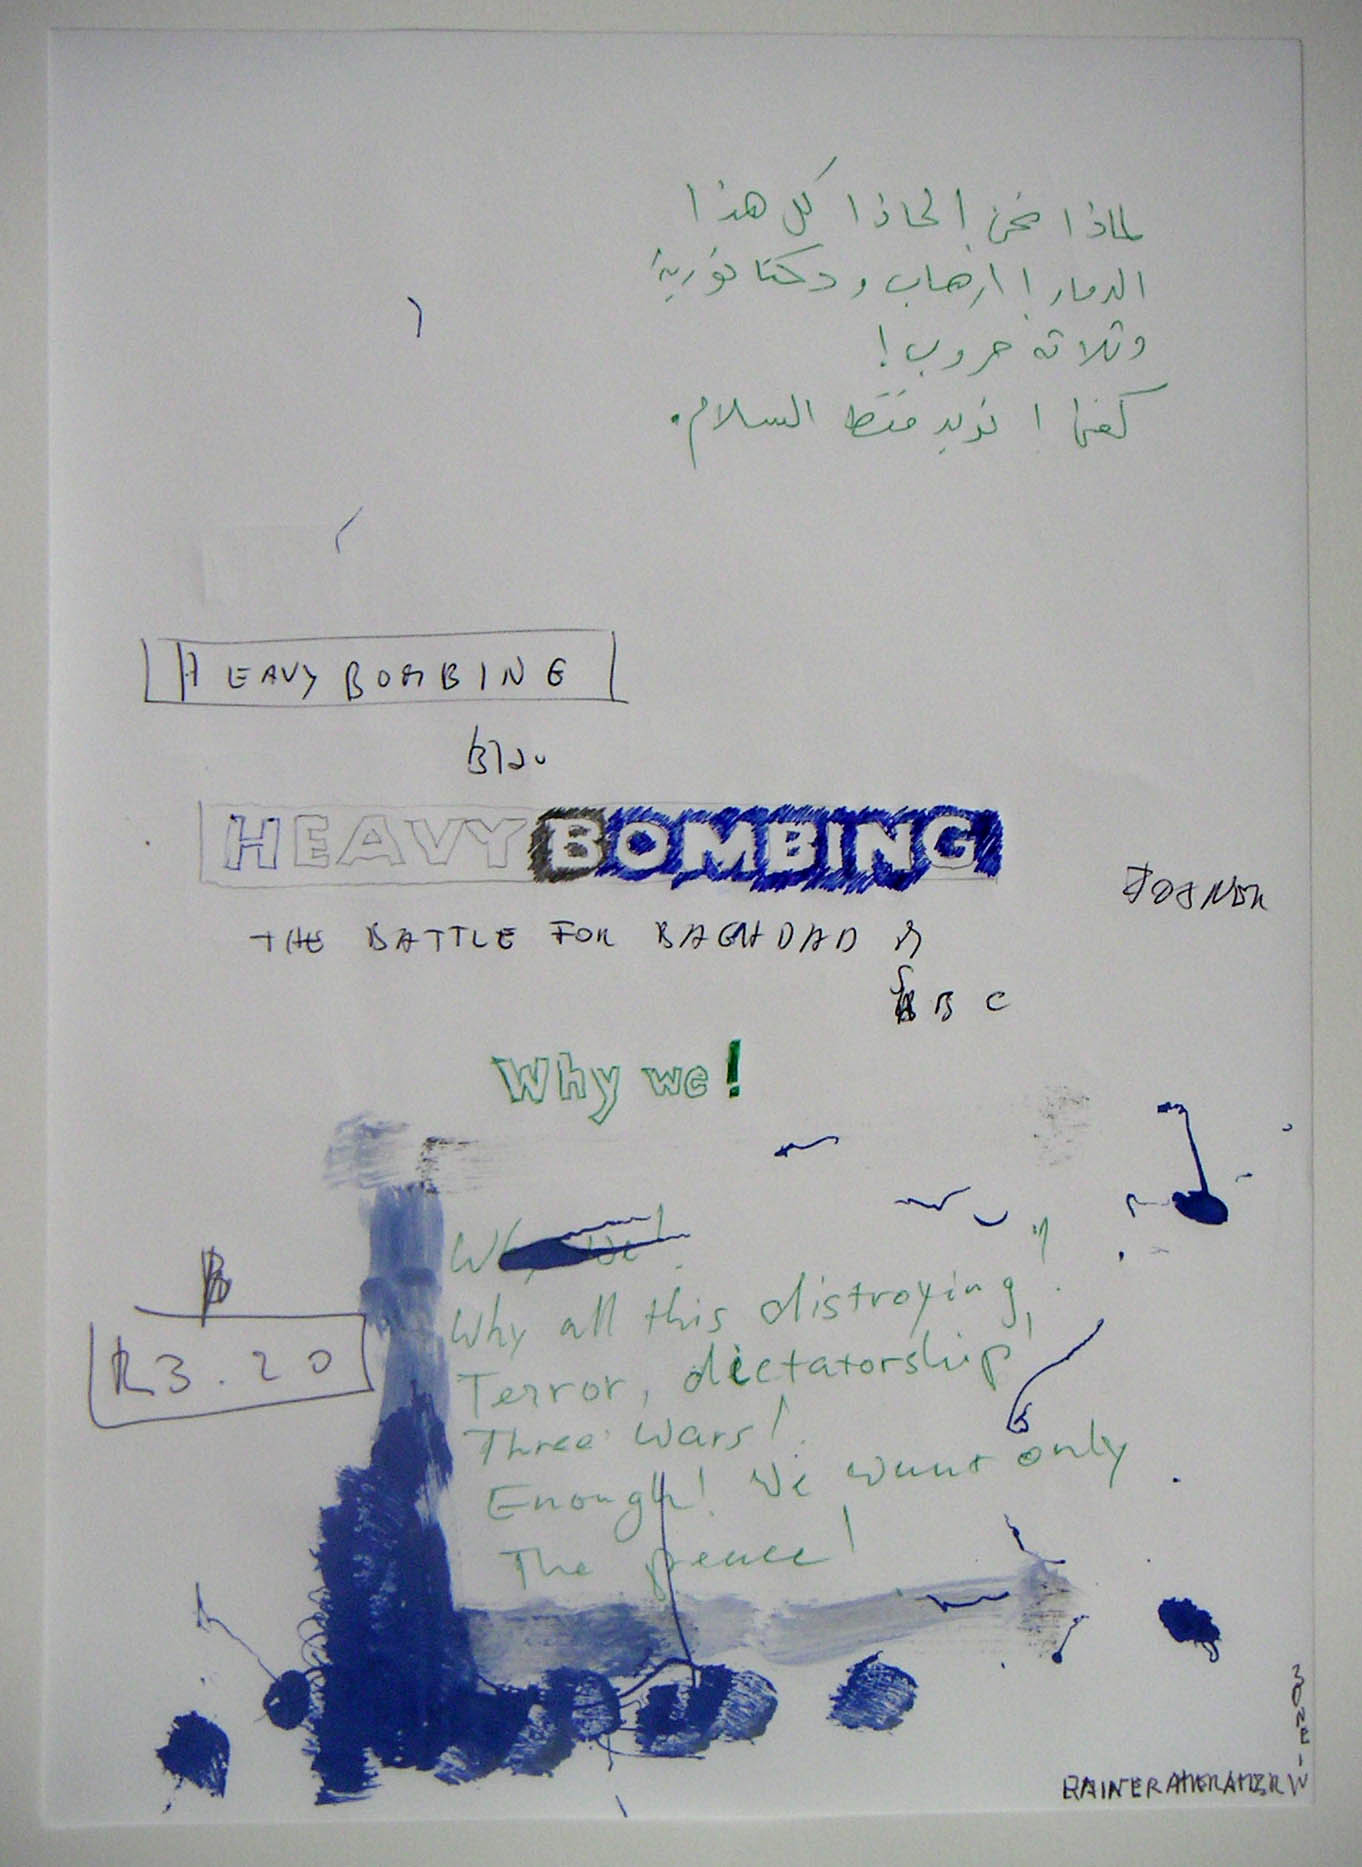 لماذا نحن! لماذا كل هذا
الدمار! ارهاب و دكتاتورية
وثلاثة حروب!
كفى! نريد فقط السلام.
HEAVY BOMBING
Blau
HEAVY BOMBING
THE BATTLE FOR BAGHDAD
BBC
Why we!
Why all this distroying!
Terror, dictatorship!
Three wars!
Enough! We want only
The peace!
B
R3.20